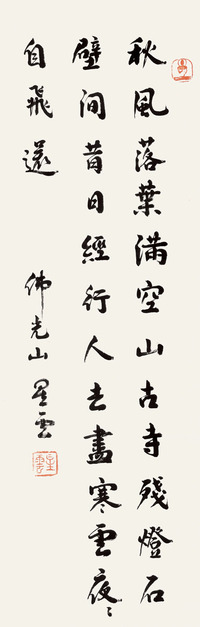 秋風落葉滿空山古寺殘燈石
壁間昔日經行人去盡寒雲夜〻
自飛還
佛光山 星雲